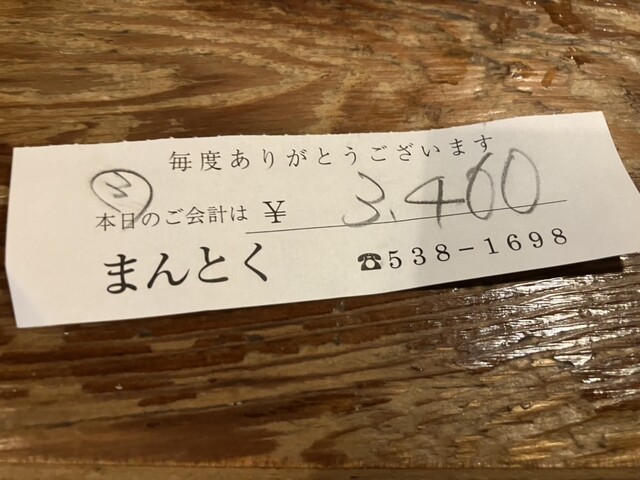 毎度ありがとうございます
本日のご会計は ¥ 3,400
まんとく ☎538-1698